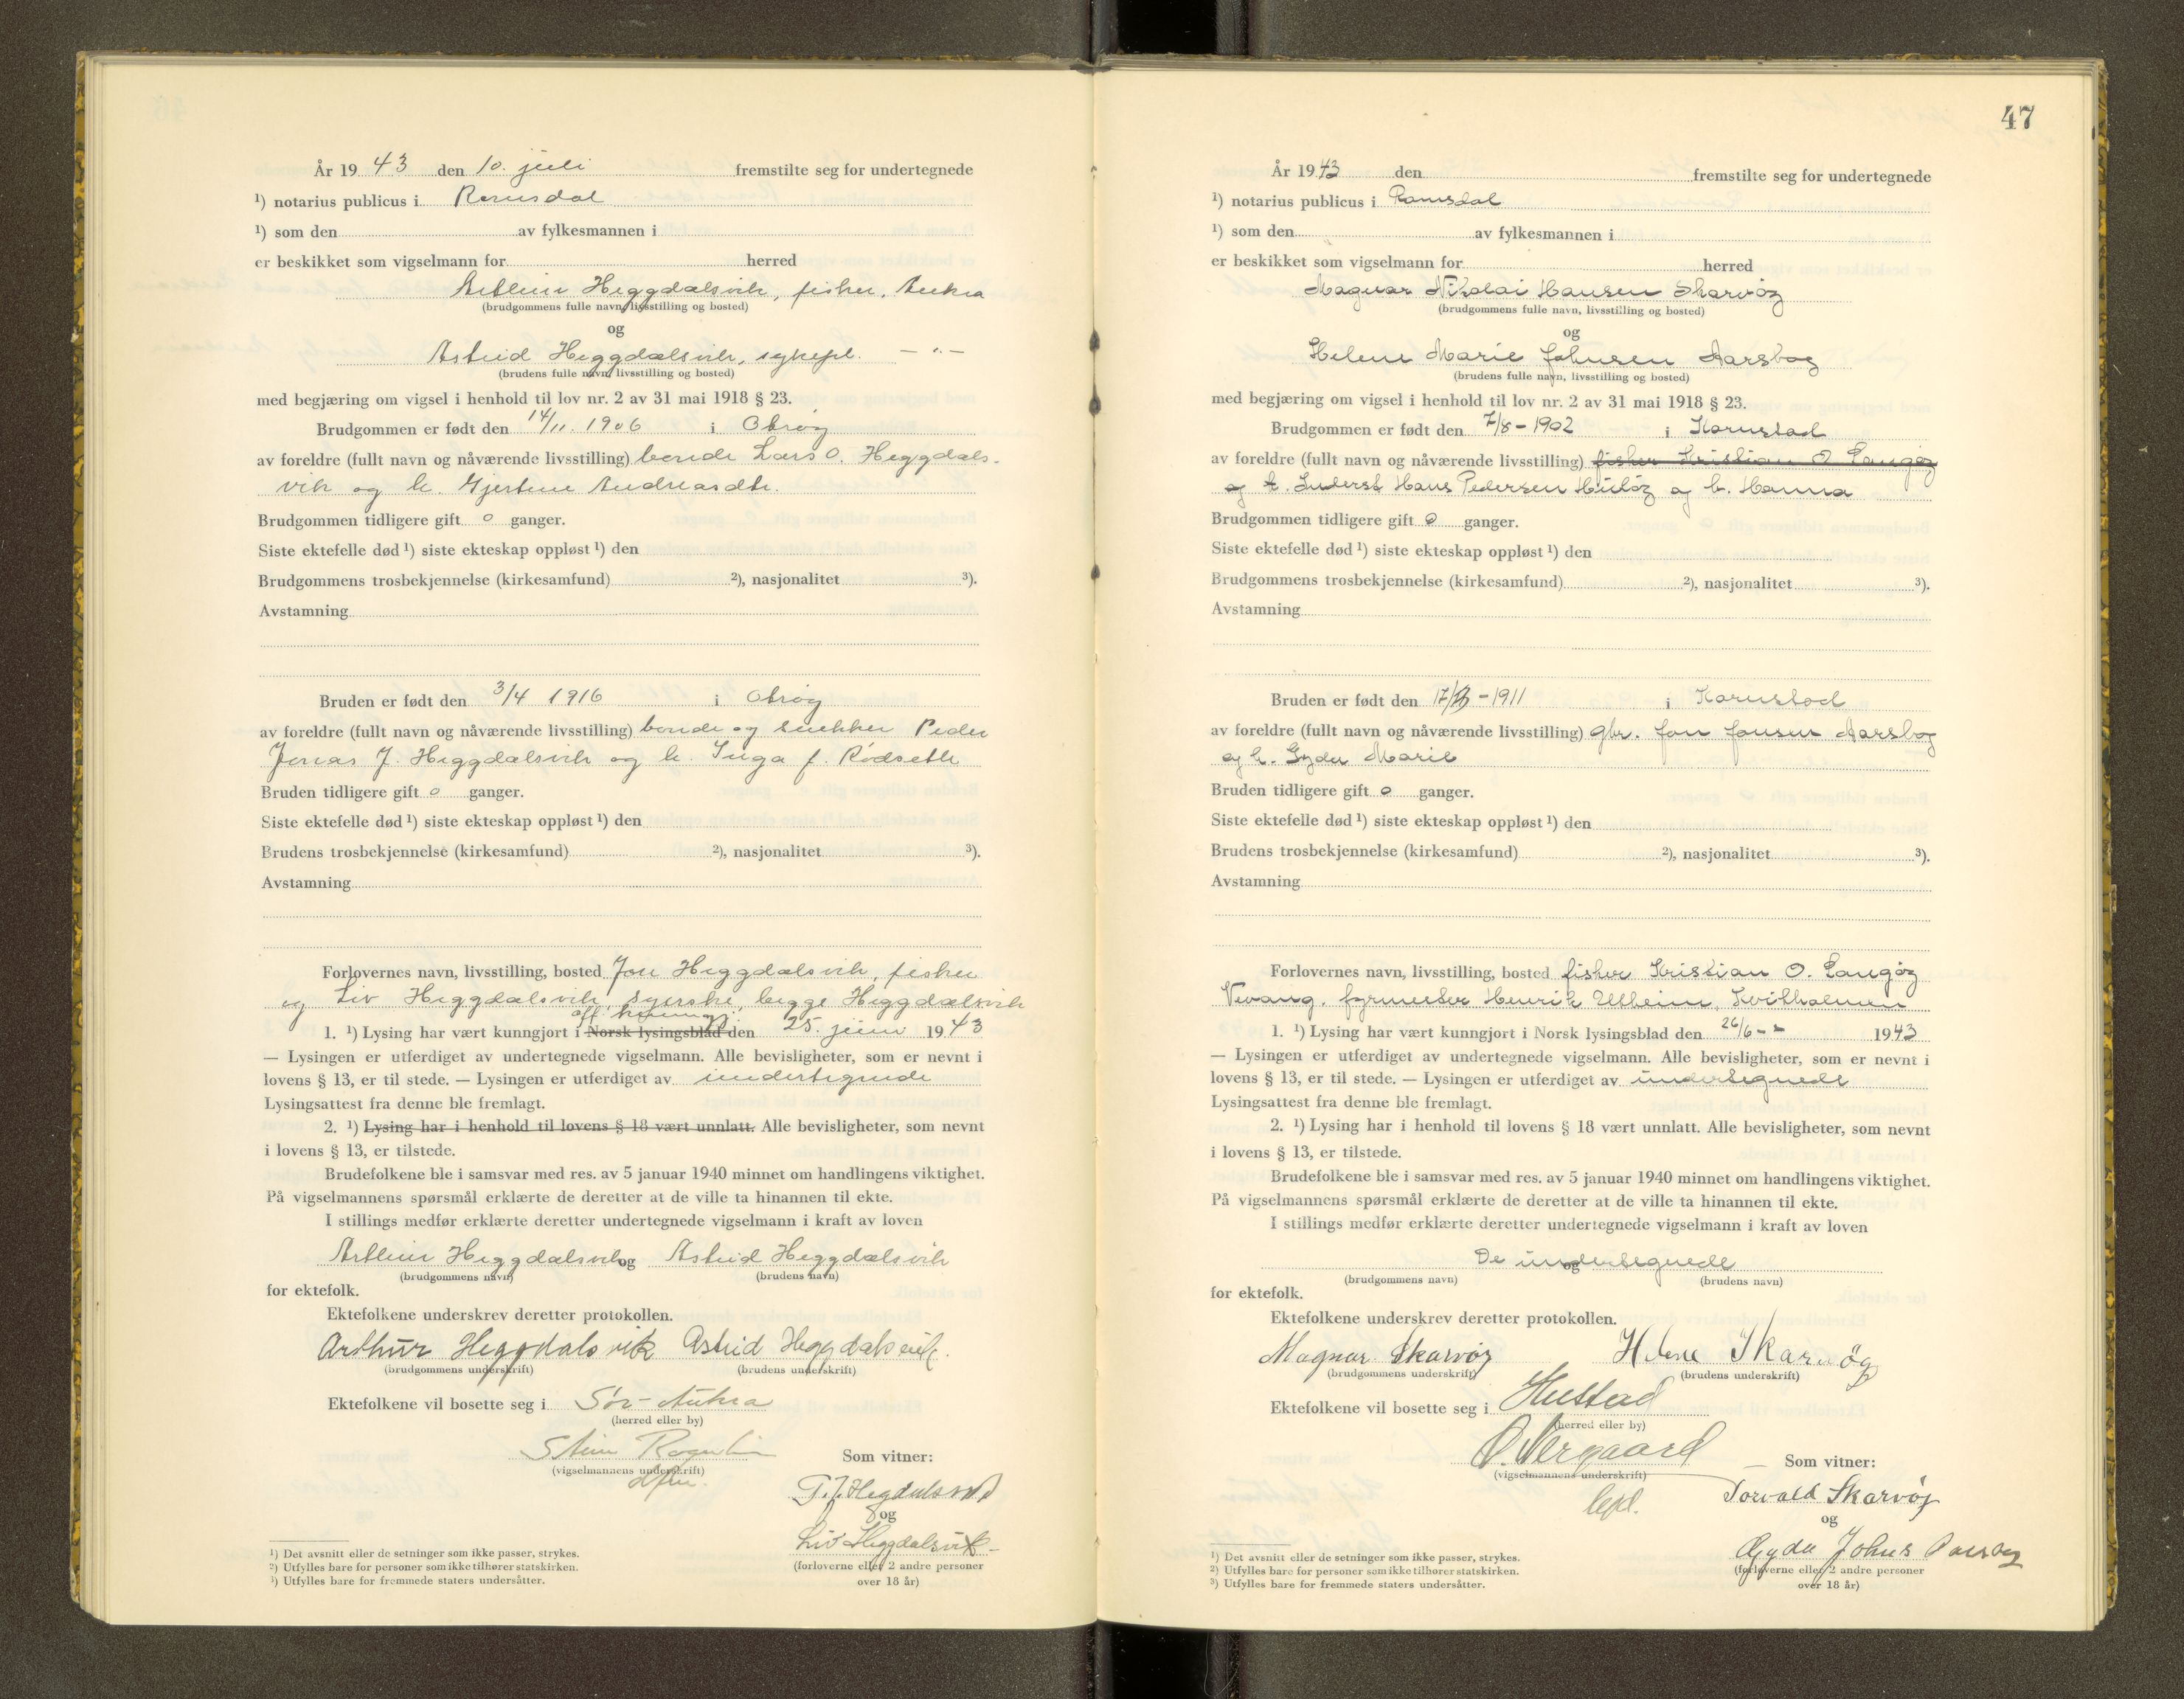 År 19 43 den 10. juli fremstilte seg for undertegnede
¹) notarius publicus i Romsdal
¹) som den av fylkesmannen i
er beskikket som vigselmann for herred
Arthur Heggdalsvik, fisker, Aukra
(brudgommens fulle navn, livsstilling og bosted)
og
Astrid Heggdalsvik, sykepl. — " —
(brudens fulle navn, livsstilling og bosted)
med begjæring om vigsel i henhold til lov nr. 2 av 31 mai 1918 § 23.
Brudgommen er født den 14/11. 1906 i Otrøy
av foreldre (fullt navn og nåværende livsstilling) bonde Lars O. Heggdals-
vik og h. Gjertine Andreasdtr.
Brudgommen tidligere gift 0 ganger.
Siste ektefelle død ¹) siste ekteskap oppløst ¹) den
Brudgommens trosbekjennelse (kirkesamfund) ²), nasjonalitet ³).
Avstamning
Bruden er født den 3/4 1916 i Otrøy
av foreldre (fullt navn og nåværende livsstilling) bonde og snekker Peder
Jonas J. Heggdalsvik og h. Inga f. Rødseth
Bruden tidligere gift 0 ganger.
Siste ektefelle død ¹) siste ekteskap oppløst ¹) den
Brudens trosbekjennelse (kirkesamfund) ²), nasjonalitet ³).
Avstamning
Forlovernes navn, livsstilling, bosted Jon Heggdalsvik, fisker
og Liv Heggdalsvik, syerske, begge Heggdalsvik
off. kunngj.
1. ¹) Lysing har vært kunngjort i Norsk lysingsblad den 25. juni 19 43
— Lysingen er utferdiget av undertegnede vigselmann. Alle bevisligheter, som er nevnt i
lovens § 13, er til stede. — Lysingen er utferdiget av undertegnede
Lysingsattest fra denne ble fremlagt.
2. ¹) Lysing har i henhold til lovens § 18 vært unnlatt. Alle bevisligheter, som nevnt
i lovens § 13, er tilstede.
Brudefolkene ble i samsvar med res. av 5 januar 1940 minnet om handlingens viktighet.
På vigselmannens spørsmål erklærte de deretter at de ville ta hinannen til ekte.
I stillings medfør erklærte deretter undertegnede vigselmann i kraft av loven
Arthur Heggdalsvik og Astrid Heggdalsvik
(brudgommens navn) (brudens navn)
for ektefolk.
Ektefolkene underskrev deretter protokollen.
Arthur Heggdalsvik Astrid Heggdalsvik.
(brudgommens underskrift) (brudens underskrift)
Ektefolkene vil bosette seg i Sør-Aukra
(herred eller by)
Stein
(vigselmannens underskrift) Som vitner:
P. J. Hegdalsvik
og
Liv Heggdalsvik
(forloverne eller 2 andre personer
over 18 år)
¹) Det avsnitt eller de setninger som ikke passer, strykes.
²) Utfylles bare for personer som ikke tilhører statskirken.
³) Utfylles bare for fremmede staters undersåtter.
47
År 19 43 den fremstilte seg for undertegnede
¹) notarius publicus i Romsdal
¹) som den av fylkesmannen i
er beskikket som vigselmann for herred
Magnar Nikolai Hansen Skarvøy
(brudgommens fulle navn, livsstilling og bosted)
og
Helene Marie Johnsen Aarsbog
(brudens fulle navn, livsstilling og bosted)
med begjæring om vigsel i henhold til lov nr. 2 av 31 mai 1918 § 23.
Brudgommen er født den 7/8 - 1902 i Kornstad
av foreldre (fullt navn og nåværende livsstilling) fisker Kristian O. Langøy
og Hans Pedersen og h. Hanna
Brudgommen tidligere gift 0 ganger.
Siste ektefelle død ¹) siste ekteskap oppløst ¹) den
Brudgommens trosbekjennelse (kirkesamfund) ²), nasjonalitet ³).
Avstamning
Bruden er født den - 1911 i Kornstad
av foreldre (fullt navn og nåværende livsstilling) gbr. Jon Jonsen Aarsbog
og h. Gyda Marie
Bruden tidligere gift 0 ganger.
Siste ektefelle død ¹) siste ekteskap oppløst ¹) den
Brudens trosbekjennelse (kirkesamfund) ²), nasjonalitet ³).
Avstamning
Forlovernes navn, livsstilling, bosted fisker Kristian O. Langøy
Vevang, fyrmester Henrik Ulheim, Kvitholmen
1. ¹) Lysing har vært kunngjort i Norsk lysingsblad den 26/6 - 19 43
— Lysingen er utferdiget av undertegnede vigselmann. Alle bevisligheter, som er nevnt i
lovens § 13, er til stede. — Lysingen er utferdiget av undertegnede
Lysingsattest fra denne ble fremlagt.
2. ¹) Lysing har i henhold til lovens § 18 vært unnlatt. Alle bevisligheter, som nevnt
i lovens § 13, er tilstede.
Brudefolkene ble i samsvar med res. av 5 januar 1940 minnet om handlingens viktighet.
På vigselmannens spørsmål erklærte de deretter at de ville ta hinannen til ekte.
I stillings medfør erklærte deretter undertegnede vigselmann i kraft av loven
De undertegnede
og
(brudgommens navn) (brudens navn)
for ektefolk.
Ektefolkene underskrev deretter protokollen.
Magnar Skarvøy Helene Skarvøy
(brudgommens underskrift) (brudens underskrift)
Ektefolkene vil bosette seg i Hustad
(herred eller by)
O. Vergaard
(vigselmannens underskrift) Som vitner:
Torvald Skarvøy
og
Gyda Johns
(forloverne eller 2 andre personer
over 18 år)
¹) Det avsnitt eller de setninger som ikke passer, strykes.
²) Utfylles bare for personer som ikke tilhører statskirken.
³) Utfylles bare for fremmede staters undersåtter.